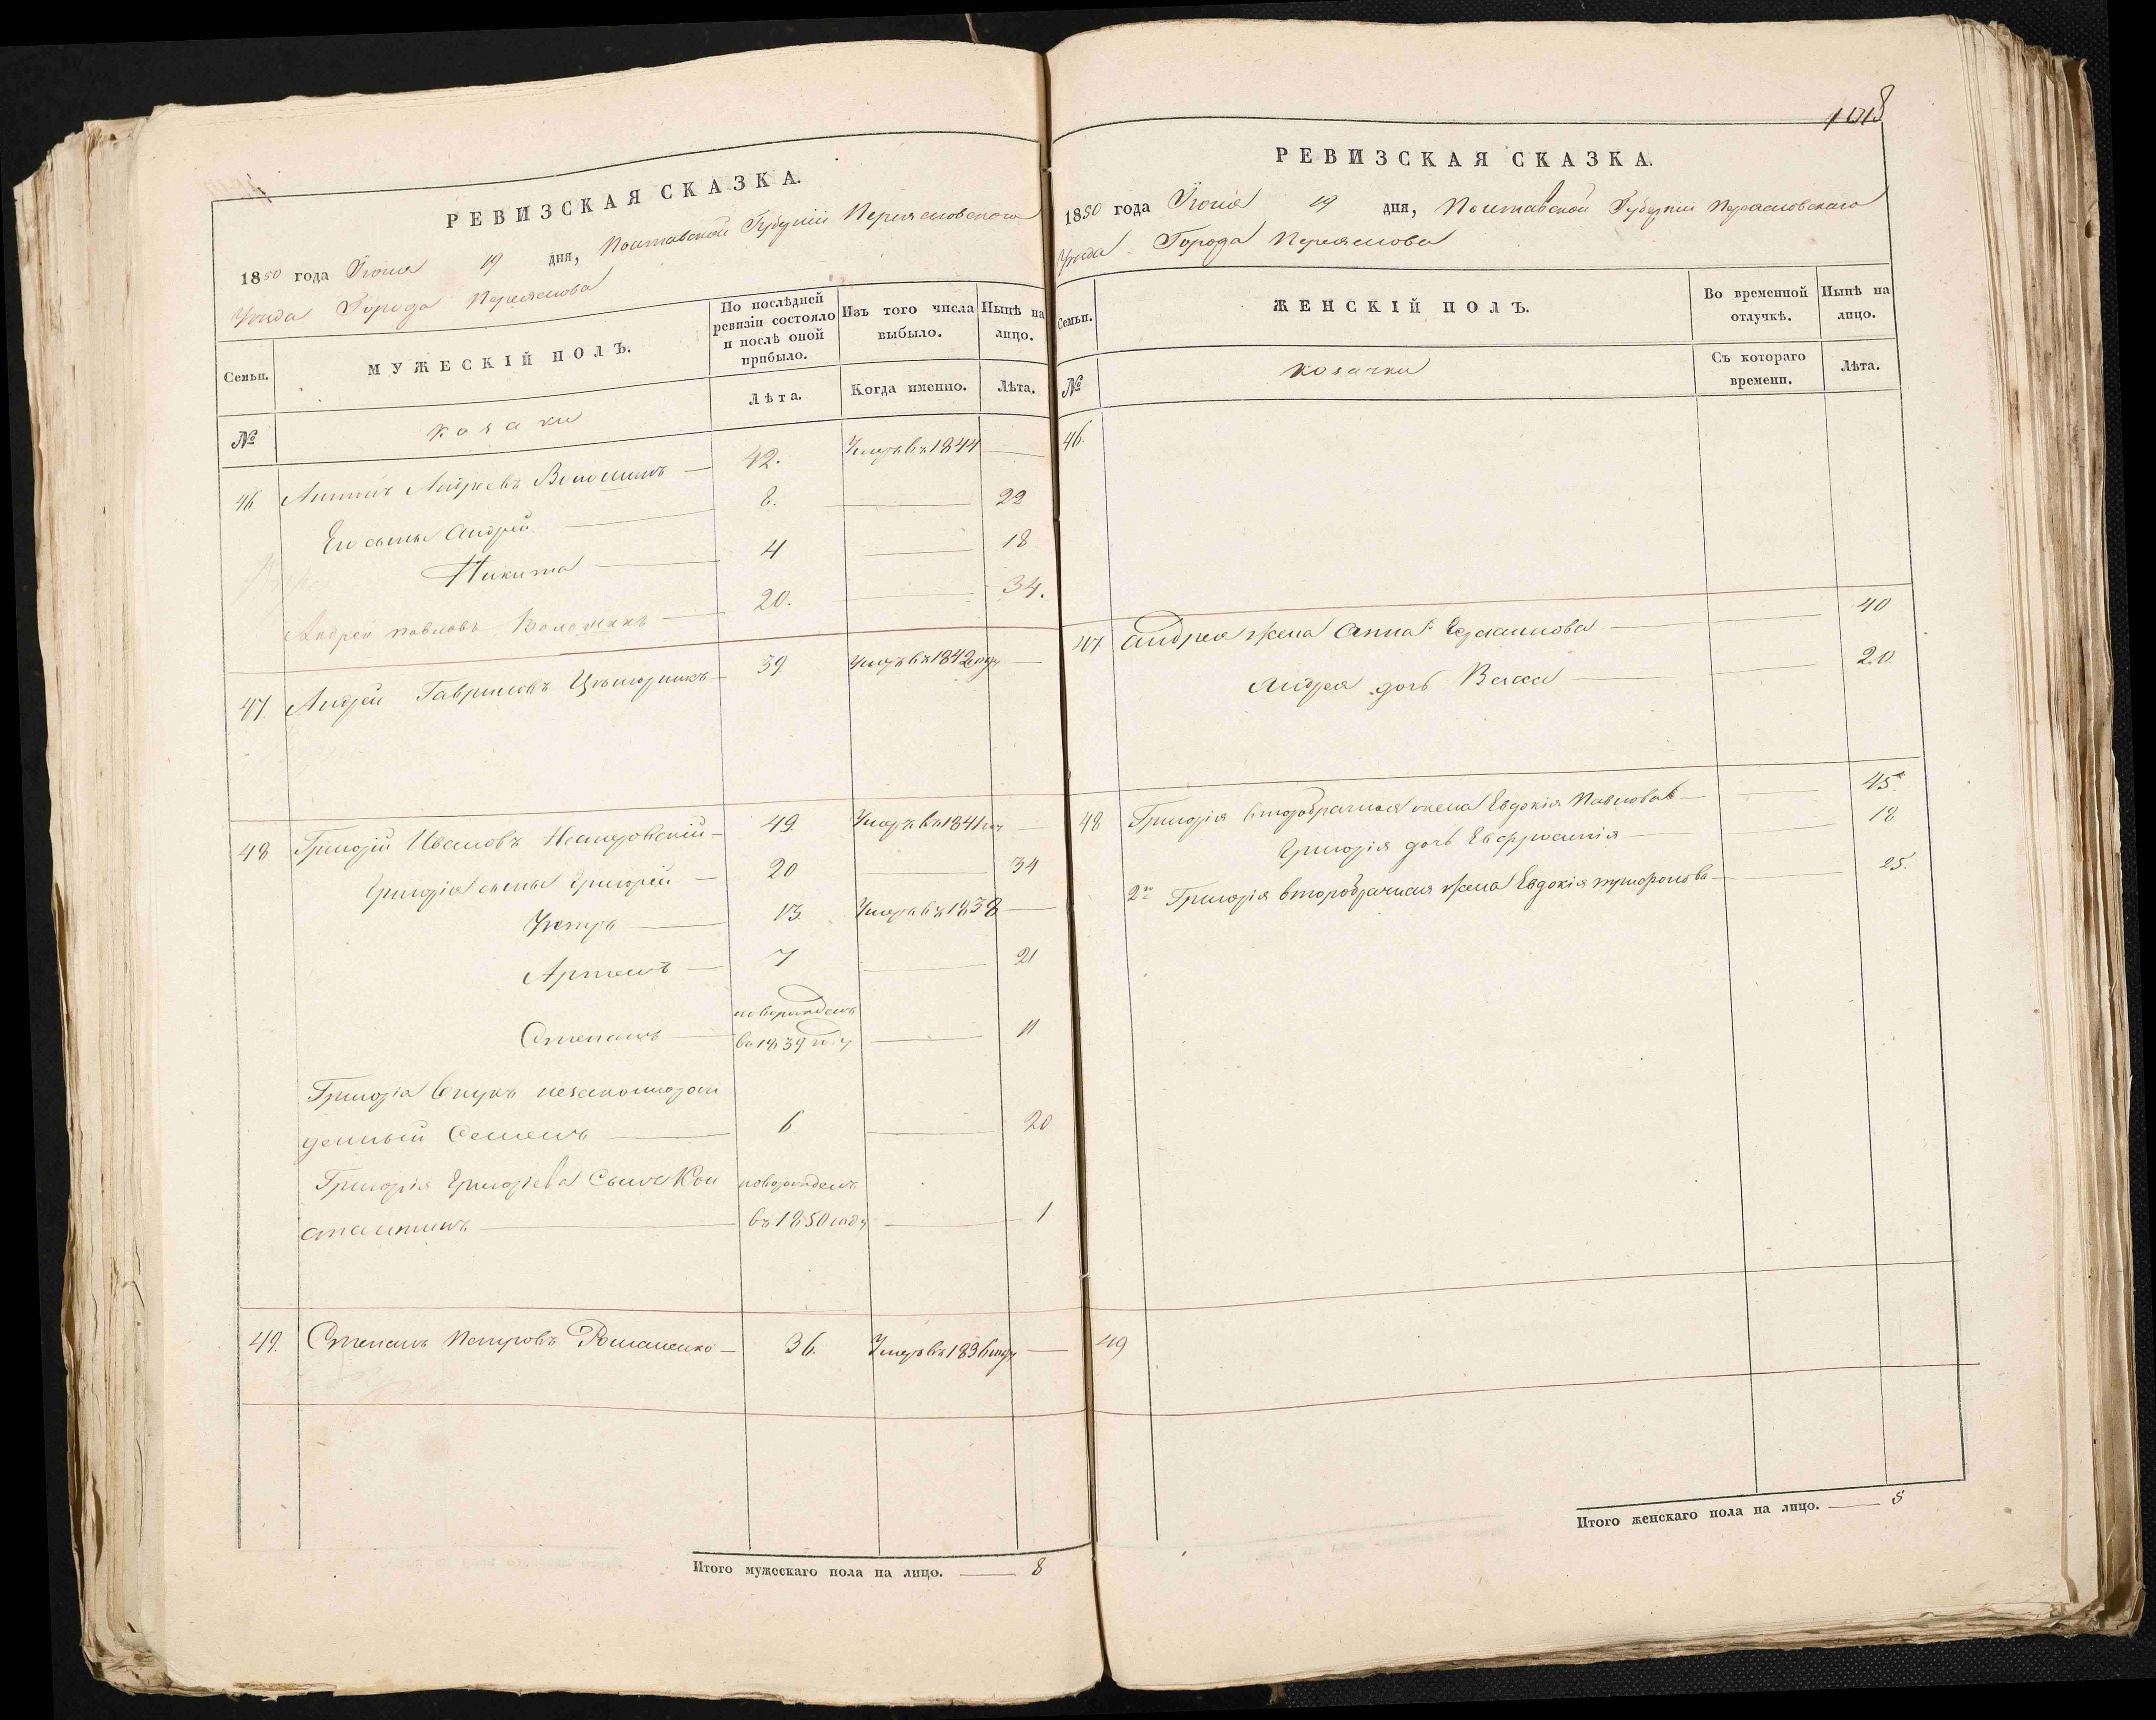 РЕВИЗСКАЯ СКАЗКА.
1850 года Іюня 19 дня, Полтавской Губерніи Переясловского
Уезда Города Переяслова
Семьи.
МУЖЕСКІЙ ПОЛЪ.
По послѣдней ревизіи состояло и послѣ оной прибыло.
Изъ того числа выбыло.
Нынѣ на лицо.
№
козаки
Лѣта.
Когда именно.
Лѣта.
46 Антонъ Андреевъ Волошинъ — 42. Умеръ въ 1844 —
Его сыны Андрей — 8. — 22
Никита — 4 — 18
Андрей Павловъ Волошинъ — 20. — 34.
47. Андрей Гавриловъ — 39 Умеръ въ 1842 году —
48 Григорій Ивановъ — 49 Умеръ въ 1841 году —
Григорія сыны Григорій — 20 — 34
Петръ — 13 Умеръ въ 1838 —
Артемъ — 7 — 21
Степанъ — новорожденъ
въ 1839 году — 11
Григорія внукъ незаконнорож
денный Семенъ — 6 — 20
Григорія Григорьева сынъ Кон новорожденъ
стантинъ — въ 1850 году — 1
49. Степанъ Петровъ Романенко — 36. Умеръ въ 1836 году —
Итого мужескаго пола на лицо. — 8
1018
РЕВИЗСКАЯ СКАЗКА.
1850 года Іюня 19 дня, Полтавской Губерніи Переясловского
Уезда Города Переяслова
Семьи.
ЖЕНСКІЙ ПОЛЪ.
Во временной отлучкѣ.
Нынѣ на лицо.
№
козачки
Съ котораго времени.
Лѣта.
46.
47. Андрея жена Анна — 40
Андрея дочь Васса — 20.
48 Григорія второбрачная жена Евдокія Павлова — 45
Григорія дочь Евфросинія — 18
2го Григорія второбрачная жена Евдокія Трифонова — 25.
49
Итого женскаго пола на лицо. — 5